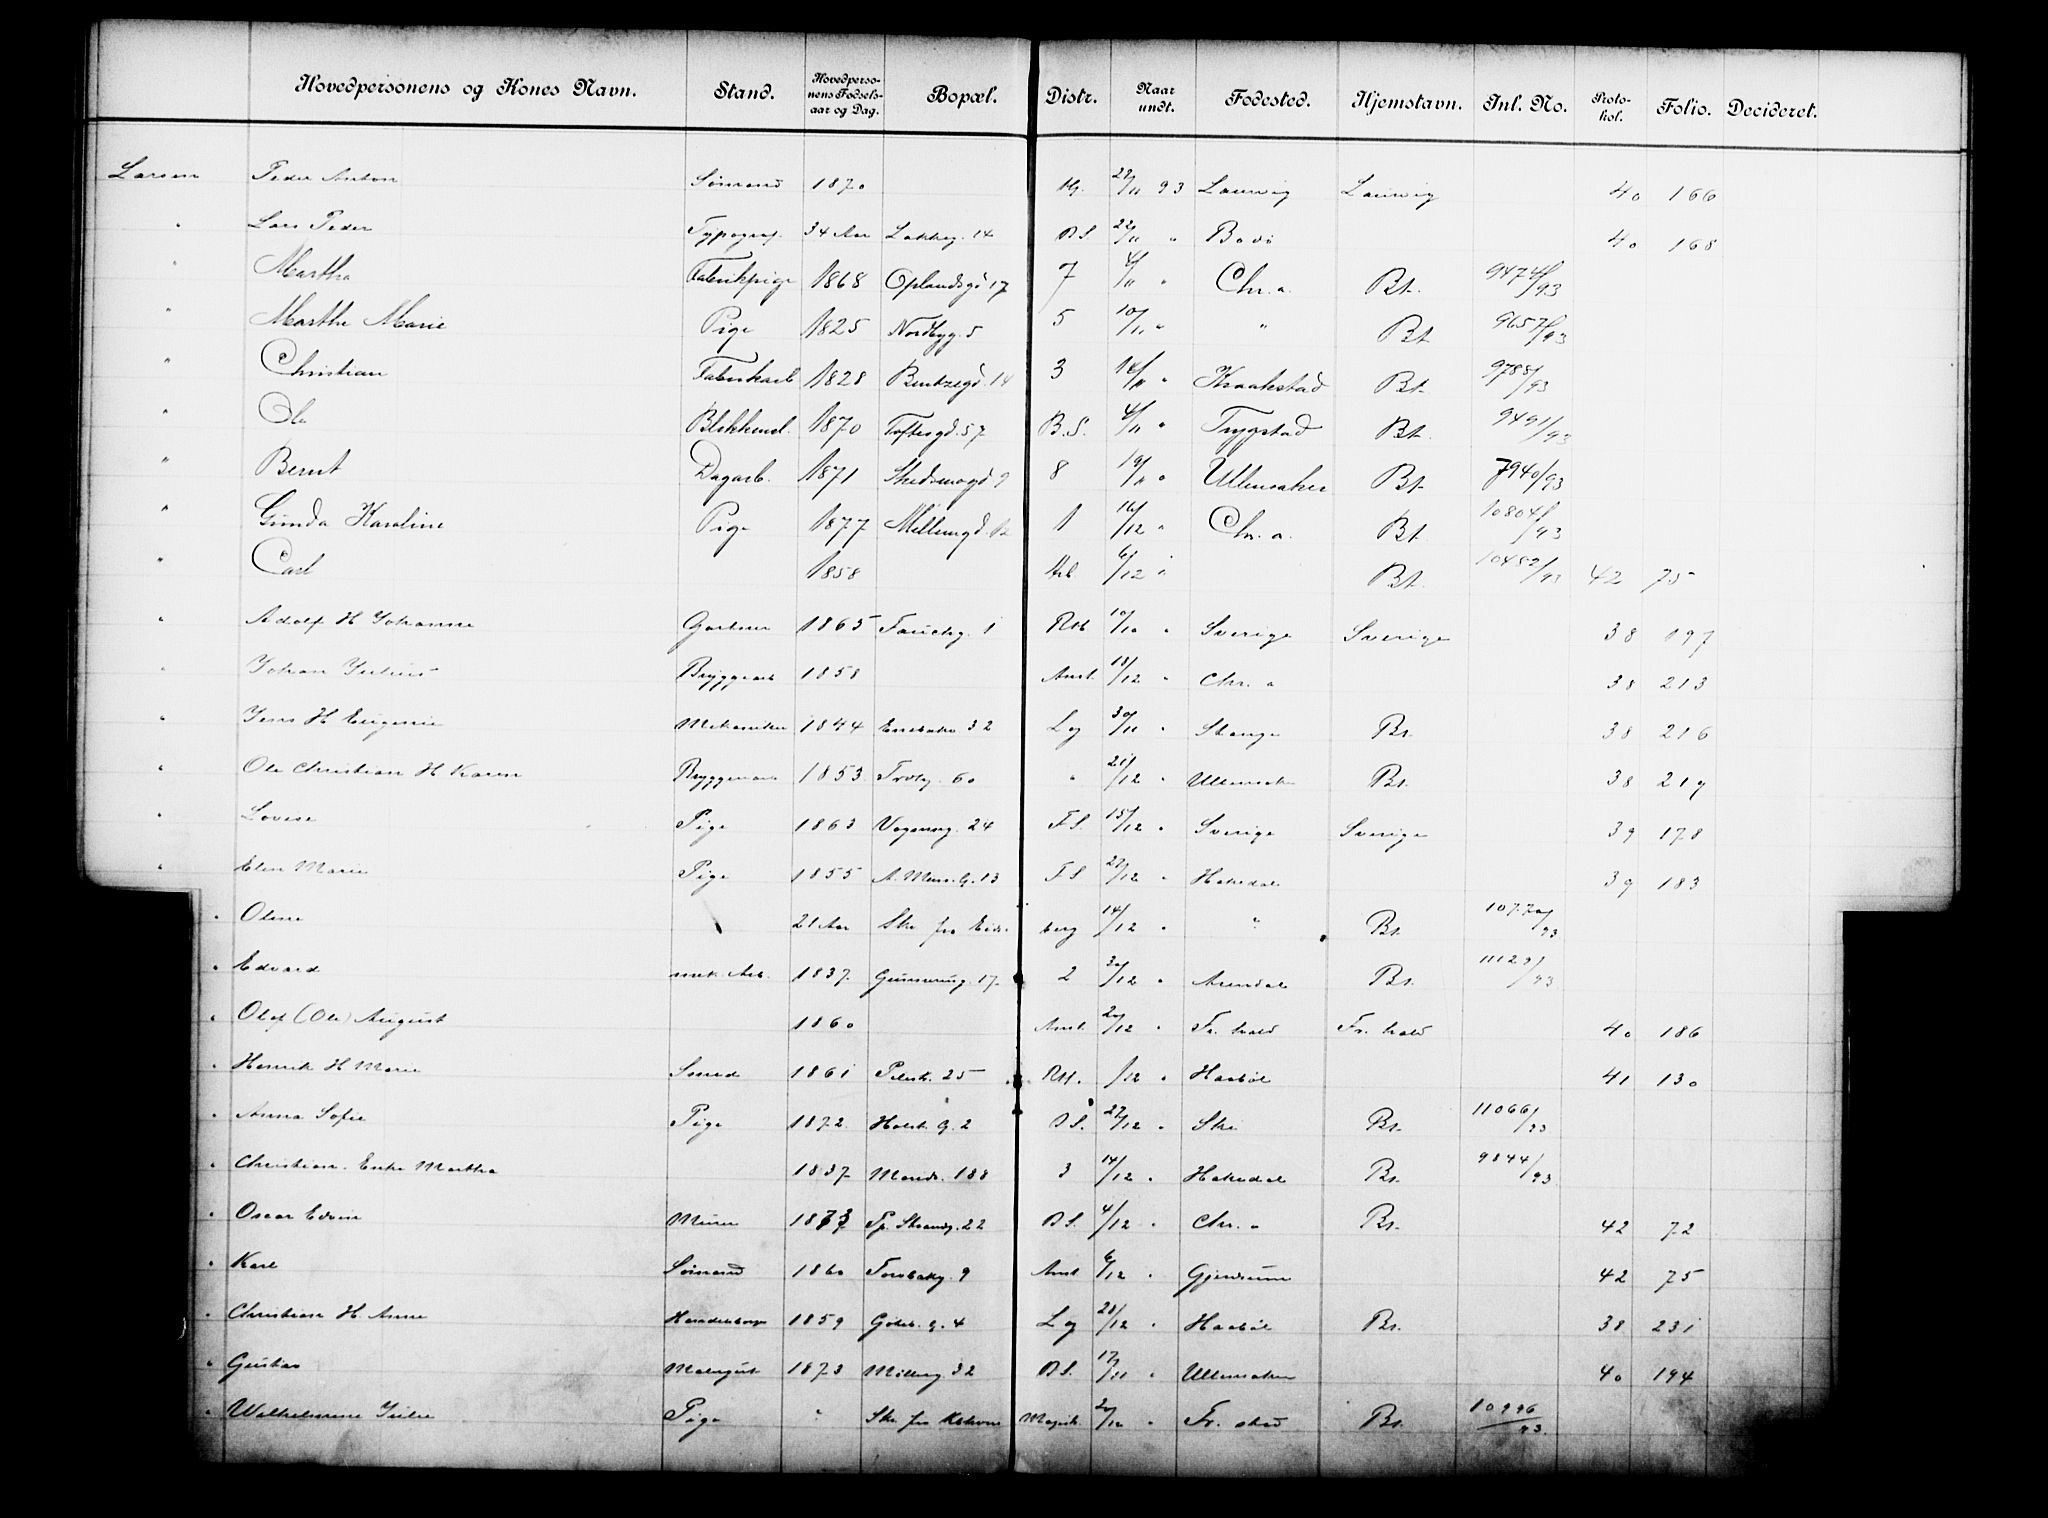 Hovedpersonens og Kones Navn. Stand. Hovedpersonens Fodselsaar og Dag. Bopæl. Distr. Naar undt. Fodested. Hjemstavn. Inl. No. Protokol. Folio. Decideret.
Larsen Peder Anton Sömand 1870 22/11 93 Laurvig Laurvig 40 166
" Lars Peder Typograf. 34 Aar Lakkeg. 14 B S 22/11 " Bodö 40 168
" Martha Fabrikpige 1868 Oplandsgd 17 7 4/11 " Chr. a. Bt. 9474/93
" Marthe Marie Pige 1825 Nordbyg. 5 5 10/11 " " Bt 9657/93
" Christian Fabrikarb 1828 Bentzegd. 14 3 14/11 " Kraakstad Bt. 9788/93
" Ole Blikkensl. 1870 Toftesgd. 57 B. S. 4/11 " Trygstad Bt. 9491/93
" Bernt Dagarb. 1871 Skedsmogd 9 8 19/11 " Ullensaker Bt. 7940/93
" Gunda Karoline Pige 1877 Möllergd. 12 1 16/12 " Chr. a. Bt. 10804/93
" Carl 1858 6/12 " Bt. 10452/93 42 75
" Adolf H Johanne Gartner 1865 1 10/10 " Sverige Sverige 38 197
" Johan Julius Bryggearb 1858 Amt. 18/12 " Chr. a 38 213
" Jens H Eugenie Mekaniker 1844 Enebakv 32 Lg 30/11 " Stange Bt. 38 216
" Ole Christian H Karen Bryggearb 1853 60 " 21/12 " Ullensaker Bt. 38 219
" Lovise Pige 1863 Vognmg. 24 F S. 15/12 " Sverige Sverige 39 178
" Elen Marie Pige 1855 A. Mun. G. 13 F S 22/12 " Hakedal 39 183
" Oline 21 Aar Skr fra Eids- berg 14/12 " " Bt. 10770/93
" Edvard mek. Arb. 1837 17 2 30/12 " Arendal Bt. 11129/93
" Olaf (Ole) August 1860 Amt. 20/12 " Fr. hald Fr. hald 40 186
" Henrik H Marie Smed 1861 Pilest. 25 RH. /12 " Haaböl 41 130
" Anna Sofie Pige 1872 Holst. G. 2 B S. 27/12 " Ski Bt. 11066/93
" Christian. Enke Martha 1837 Marids. 188 3 14/12 " Hakedal Bt. 9844/93
" Oscar Edvin Murer 1873 Gr. Strandg. 22 B S. 4/12 " Chr. a Bt. 42 72
" Karl Sömand 1860 9 Amt 6/12 " Gjerdrum 42 75
" Christian H. Anne Handelsborger 1859 Göteb. G. 4 Lg 28/12 " Haaböl Bt. 38 231
" Gustav Malergut 1873 Mölleg 32 B S. 17/11 " Ullensaker 40 194
" Wilhelmine Julie Pige " Skr. fra Magist. 20/12 " Fr. stad Bt. 10996/93.